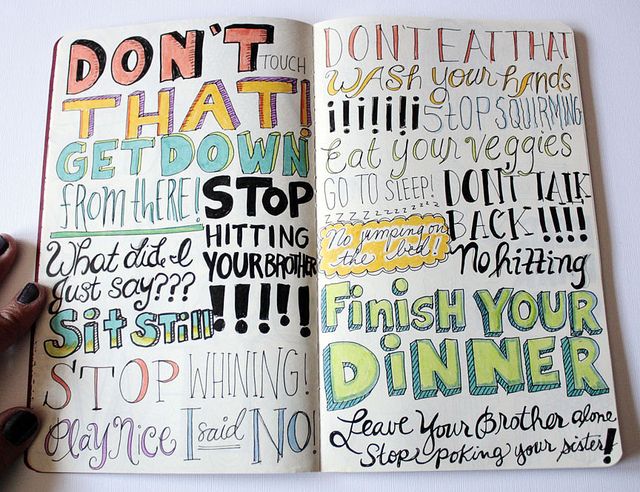 DON'T TOUCH
THAT!
GET DOWN
from tHERE!
STOP
HITTING
YOUR BROTHER
!!!!!
What did I
Just say???
Sit Still
STOP WHINING!
Play Nice I said NO!
DON'T EAT THAT
WASH your hands
!¡!¡!¡¡ STOP SQUIRMING
Eat your veggies
GO TO SLEEP!
zzzzzzzzzzzz
DON'T TALK
BACK!!!!
No jumping on
the bed!
No hitting
FiniSH YOUR
DiNNER
Leave Your Brother alone
Stop poking your sister!